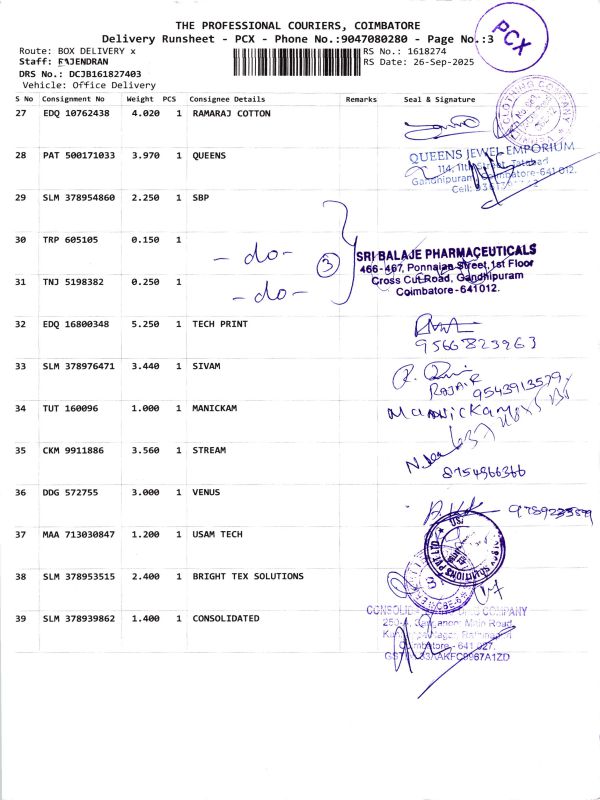 THE PROFESSIONAL COURIERS, COIMBATORE
Delivery Runsheet - PCX - Phone No.:9047080280 - Page No.:3
PCX
Route: BOX DELIVERY x
RS No.: 1618274
Staff: RAJENDRAN
RS Date: 26-Sep-2025
DRS No.: DCJB161827403
Vehicle: Office Delivery
S No Consignment No Weight PCS Consignee Details Remarks Seal & Signature
27 EDQ 10762438 4.020 1 RAMARAJ COTTON
CLOTHING COMPANY
28 PAT 500171033 3.970 1 QUEENS
QUEENS JEWEL EMPORIUM
114, 11th Street, Tatabad
Gandhipuram, Coimbatore-641 012.
Cell:
29 SLM 378954860 2.250 1 SBP
30 TRP 605105 0.150 1
- do -
3
SRI BALAJE PHARMACEUTICALS
466-467, Ponnaian Street, 1st Floor
Cross Cut Road, Gandhipuram
Coimbatore-641012.
31 TNJ 5198382 0.250 1
- do -
32 EDQ 16800348 5.250 1 TECH PRINT
9566823963
33 SLM 378976471 3.440 1 SIVAM
9543913579
34 TUT 160096 1.000 1 MANICKAM
Manickam
35 CKM 9911886 3.560 1 STREAM
8754966366
36 DDG 572755 3.000 1 VENUS
37 MAA 713030847 1.200 1 USAM TECH
SOLUTIONS PVT LTD
38 SLM 378953515 2.400 1 BRIGHT TEX SOLUTIONS
39 SLM 378939862 1.400 1 CONSOLIDATED
COMPANY
Main Road,
641 027.